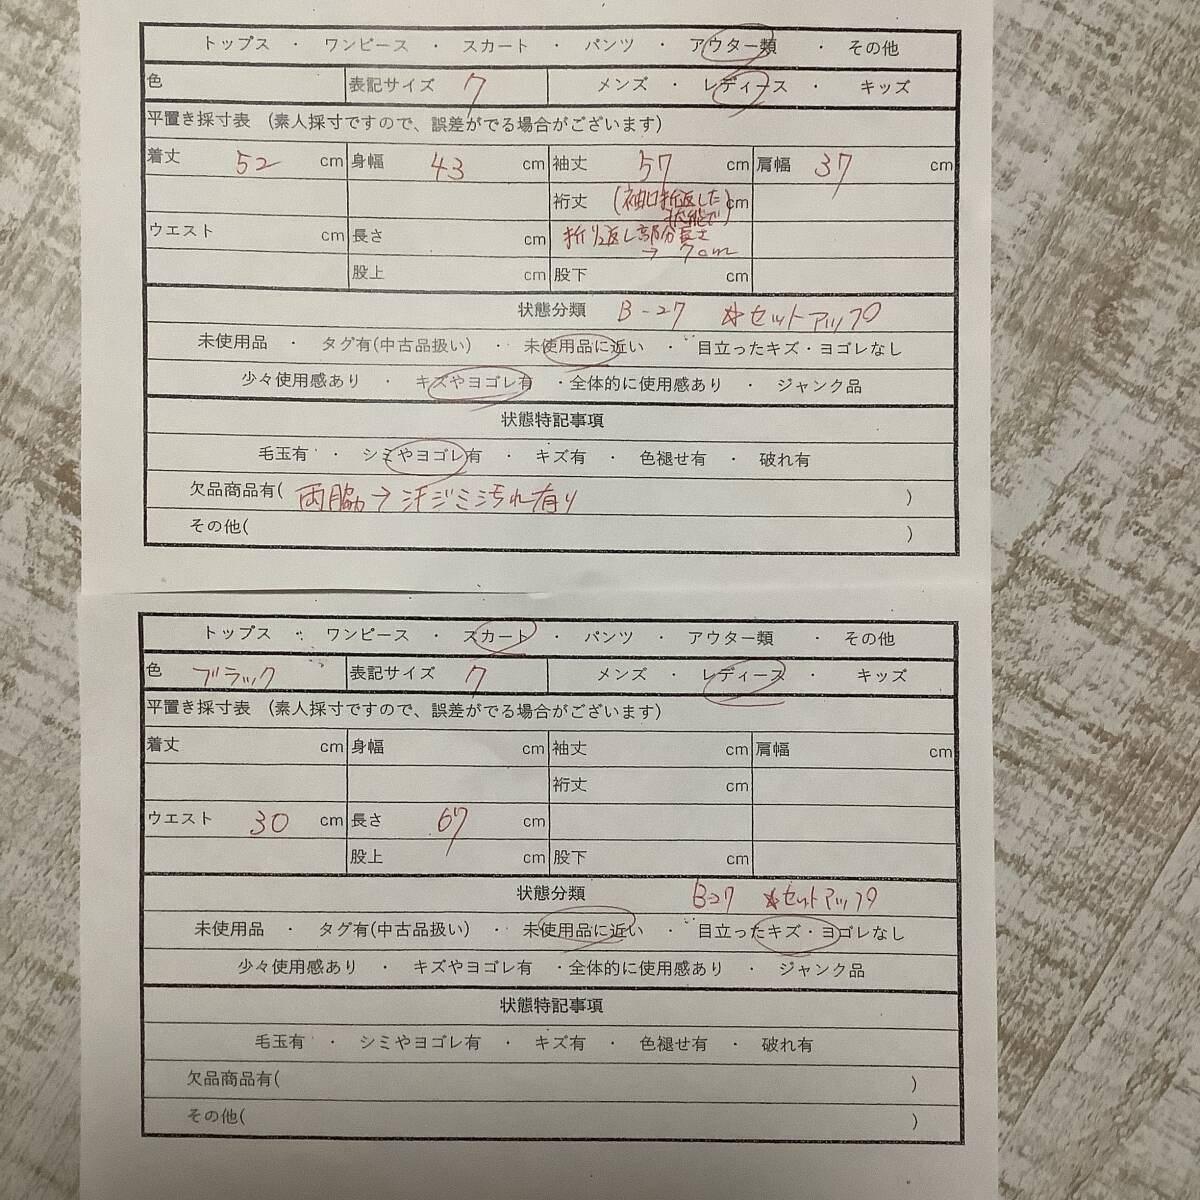 トップス ・ ワンピース ・ スカート ・ パンツ ・ アウター類 ・ その他
色 表記サイズ 7 メンズ ・ レディース ・ キッズ
平置き採寸表 (素人採寸ですので、誤差がでる場合がございます)
着丈 52 cm 身幅 43 cm 袖丈 57 cm 肩幅 37 cm
裄丈 (袖口折返した cm
状態で)
ウエスト cm 長さ cm 折り返し部分長さ
→ 7cm
股上 cm 股下 cm
状態分類 B-27 ☆セットアップ
未使用品 ・ タグ有(中古品扱い) ・ 未使用品に近い ・ 目立ったキズ・ヨゴレなし
少々使用感あり ・ キズやヨゴレ有 ・全体的に使用感あり ・ ジャンク品
状態特記事項
毛玉有 ・ シミやヨゴレ有 ・ キズ有 ・ 色褪せ有 ・ 破れ有
欠品商品有( 両脇→汗ジミ汚れ有り )
その他( )
トップス ・ ワンピース ・ スカート ・ パンツ ・ アウター類 ・ その他
色 ブラック 表記サイズ 7 メンズ ・ レディース ・ キッズ
平置き採寸表 (素人採寸ですので、誤差がでる場合がございます)
着丈 cm 身幅 cm 袖丈 cm 肩幅 cm
裄丈 cm
ウエスト 30 cm 長さ 67 cm
股上 cm 股下 cm
状態分類 B-27 ☆セットアップ
未使用品 ・ タグ有(中古品扱い) ・ 未使用品に近い ・ 目立ったキズ・ヨゴレなし
少々使用感あり ・ キズやヨゴレ有 ・全体的に使用感あり ・ ジャンク品
状態特記事項
毛玉有 ・ シミやヨゴレ有 ・ キズ有 ・ 色褪せ有 ・ 破れ有
欠品商品有( )
その他( )